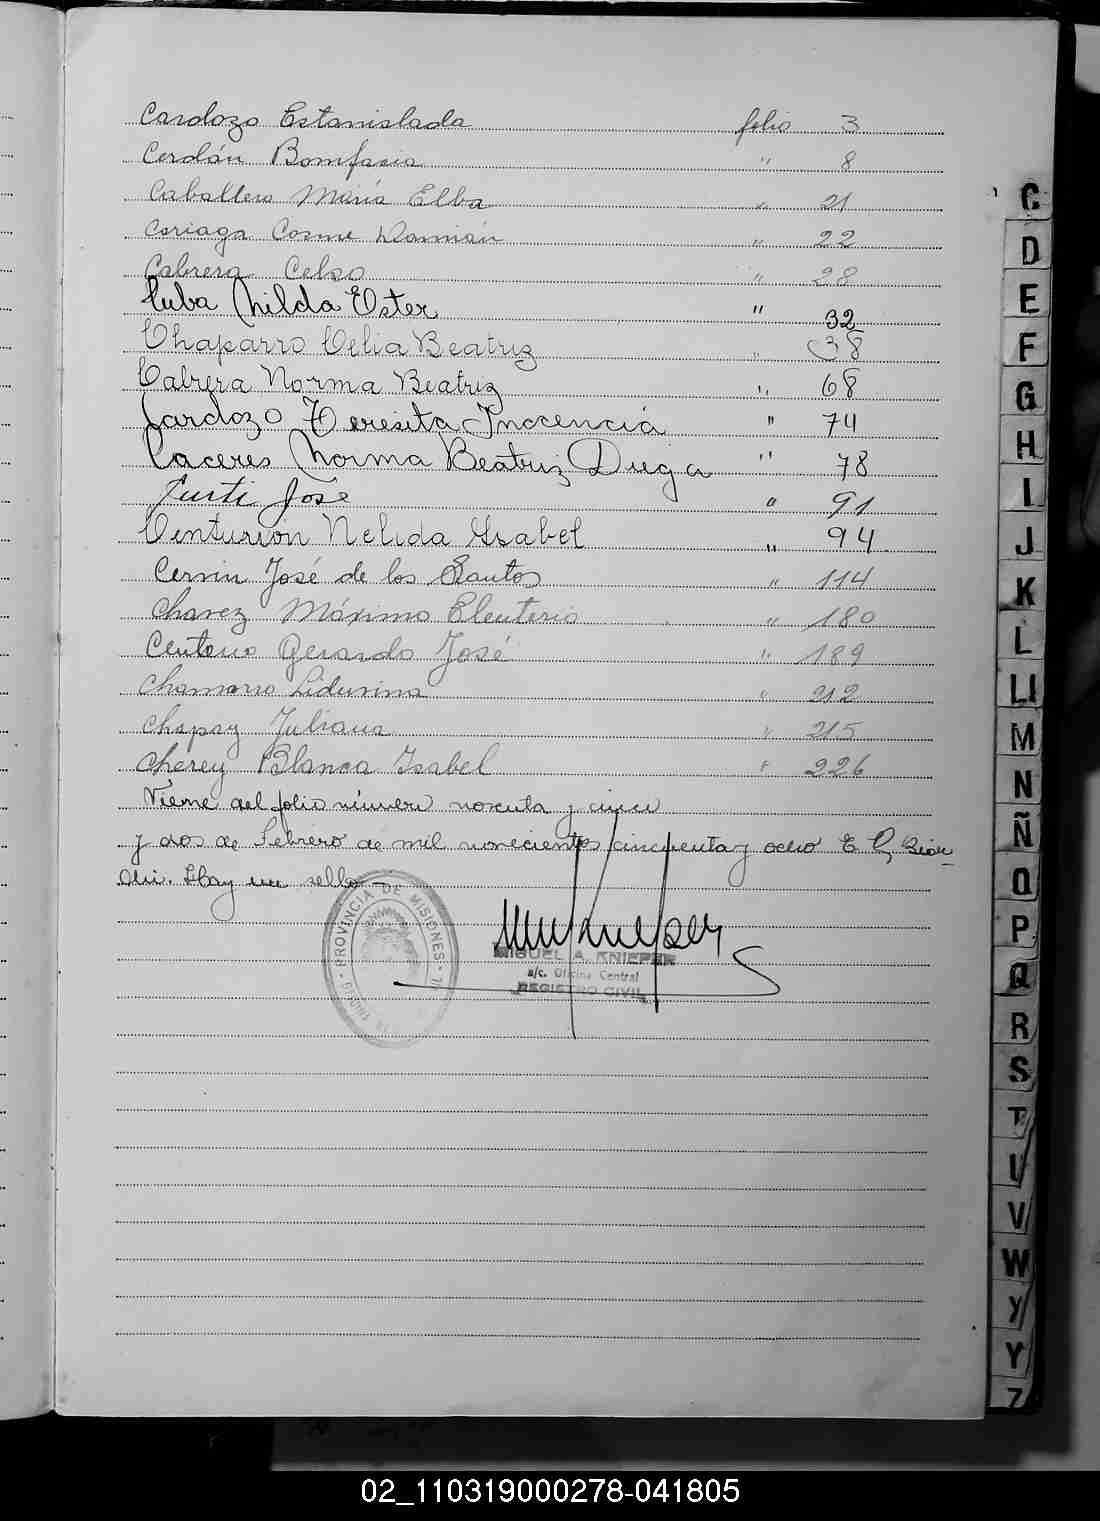 Cardozo Estanislada folio 3
Cerdán Bonifasia " 8
Caballero María Elba " 21
Cariaga Cosme Damián " 22
Cabrera Celso " 28
Cuba Nilda Ester " 32
Chaparro Celia Beatriz " 38
Cabrera Norma Beatriz " 68
Cardozo Teresita Inocencia " 74
Caceres Norma Beatriz Duega " 78
Curti José " 91
Centurión Nelida Ysabel " 94
Cersin José de los Santos " 114
Chavez Máximo Eleuterio " 180
Centeno Gerardo José " 189
Chamorro Lidurina " 212
Chapay Juliana " 215
Cherey Blanca Isabel " 226
Viene del folio número noventa y cinco
y dos de Febrero de mil novecientos cincuenta y ocho E
Hay un sello
PROVINCIA DE MISIONES
MIGUEL A. KNIEPER
a/c. Oficina Central
REGISTRO CIVIL
C
D
E
F
G
H
I
J
K
L
Ll
M
N
Ñ
O
P
Q
R
S
T
U
V
W
Y
Y
Z
02_110319000278-041805